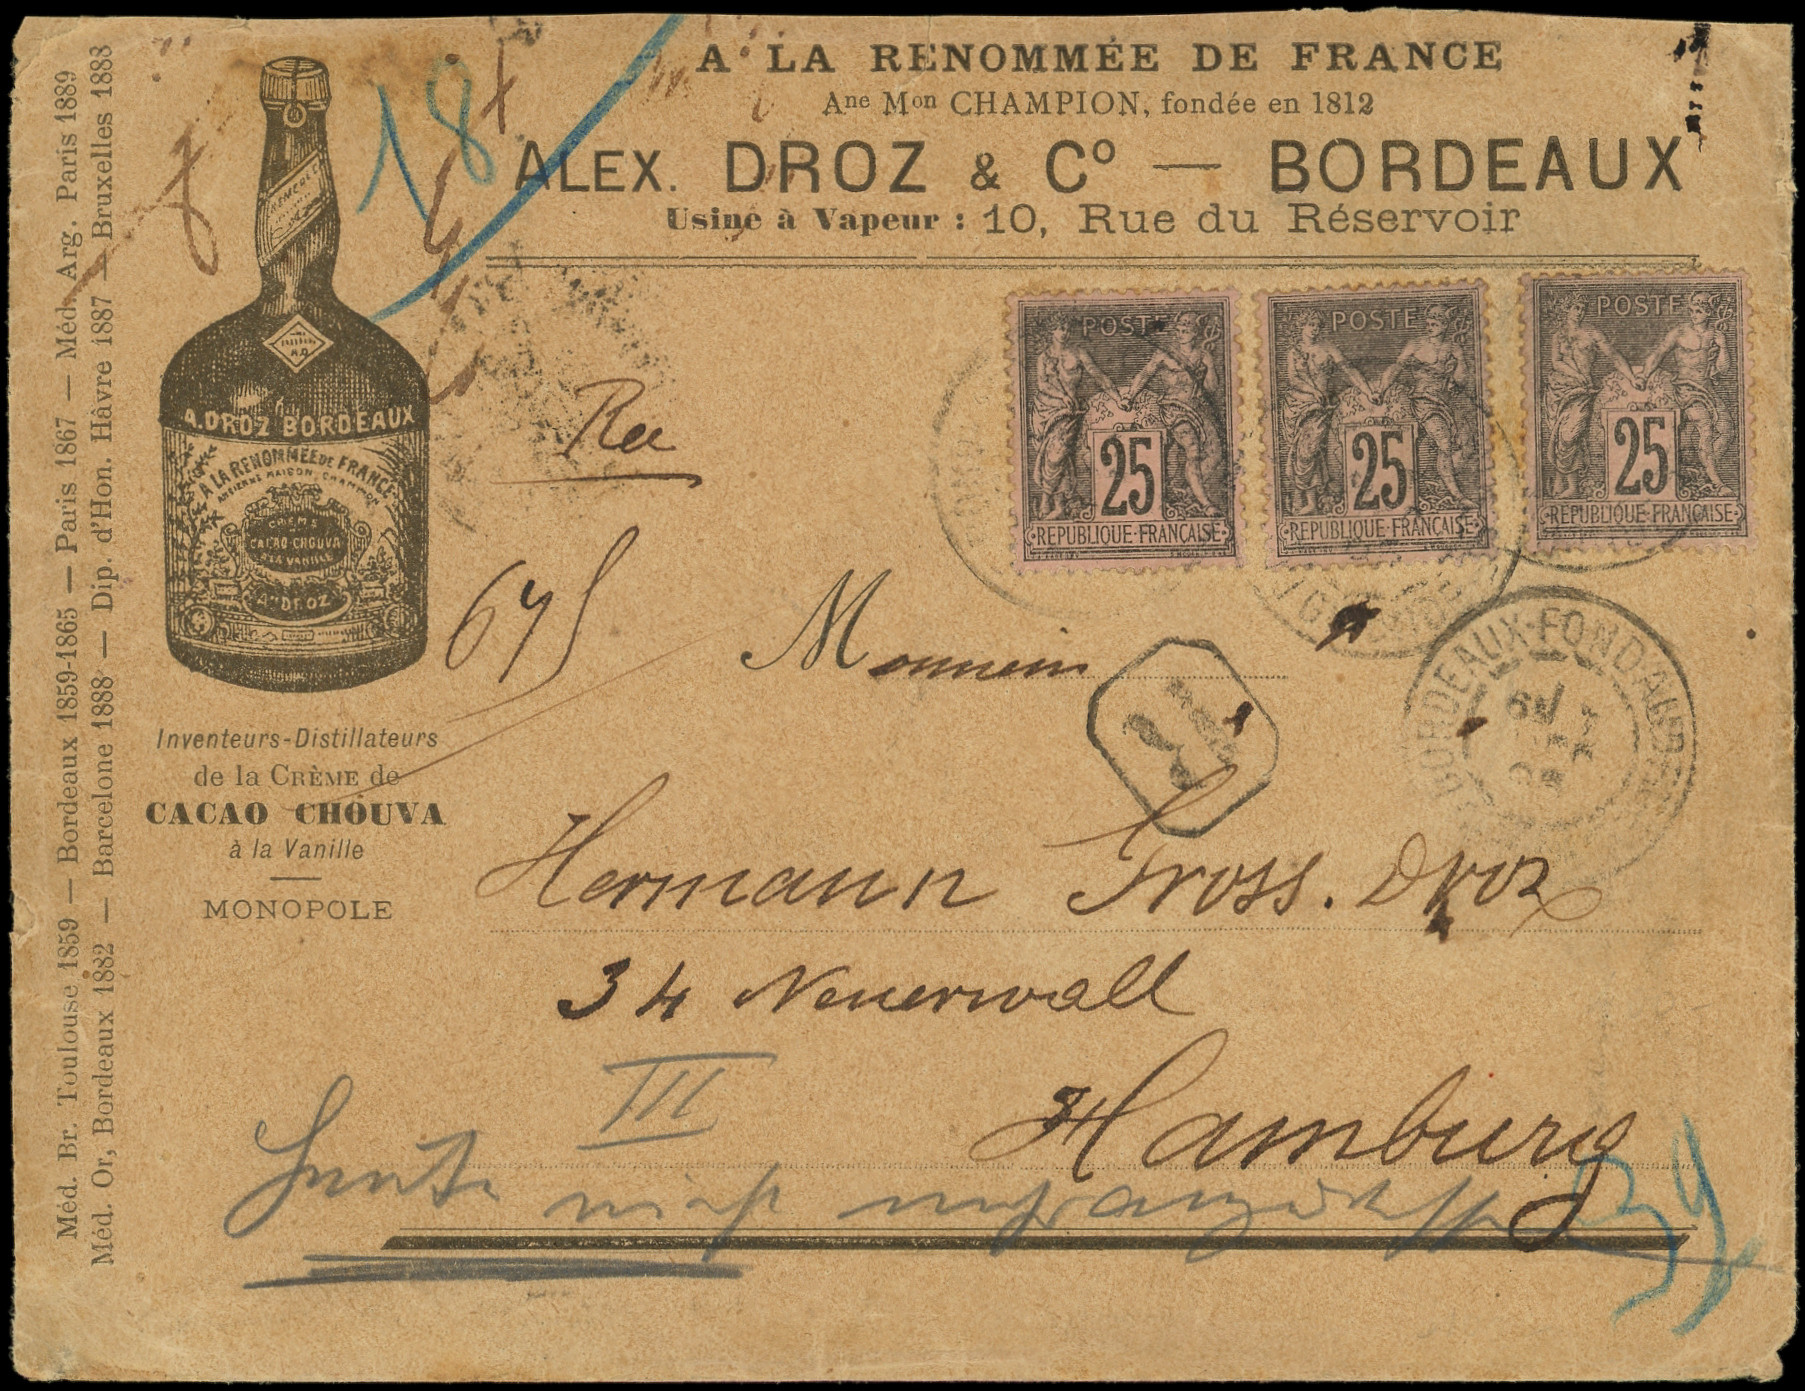 A LA RENOMMÉE DE FRANCE
Ane Mon CHAMPION, fondée en 1812
ALEX. DROZ & Co — BORDEAUX
Usine à Vapeur : 10, Rue du Réservoir
Méd. Br. Toulouse 1859 — Bordeaux 1859-1865 — Paris 1867 — Méd. Arg. Paris 1889
Méd. Or, Bordeaux 1882 — Barcelone 1888 — Dip. d'Hon. Hâvre 1887 — Bruxelles 1888
18
A. DROZ BORDEAUX
A LA RENOMMÉE DE FRANCE
ANCIENNE MAISON CHAMPION
CRÈME
CACAO-CHOUVA
A LA VANILLE
DROZ
Inventeurs-Distillateurs
de la CRÈME de
CACAO CHOUVA
à la Vanille
MONOPOLE
POSTE
25
REPUBLIQUE FRANÇAISE
POSTE
25
REPUBLIQUE FRANÇAISE
POSTE
25
REPUBLIQUE FRANÇAISE
675
R
BORDEAUX-FONDAUDEGE
Monsieur
Hermann Gross. Droz
34 Neuerwall
Hamburg
III